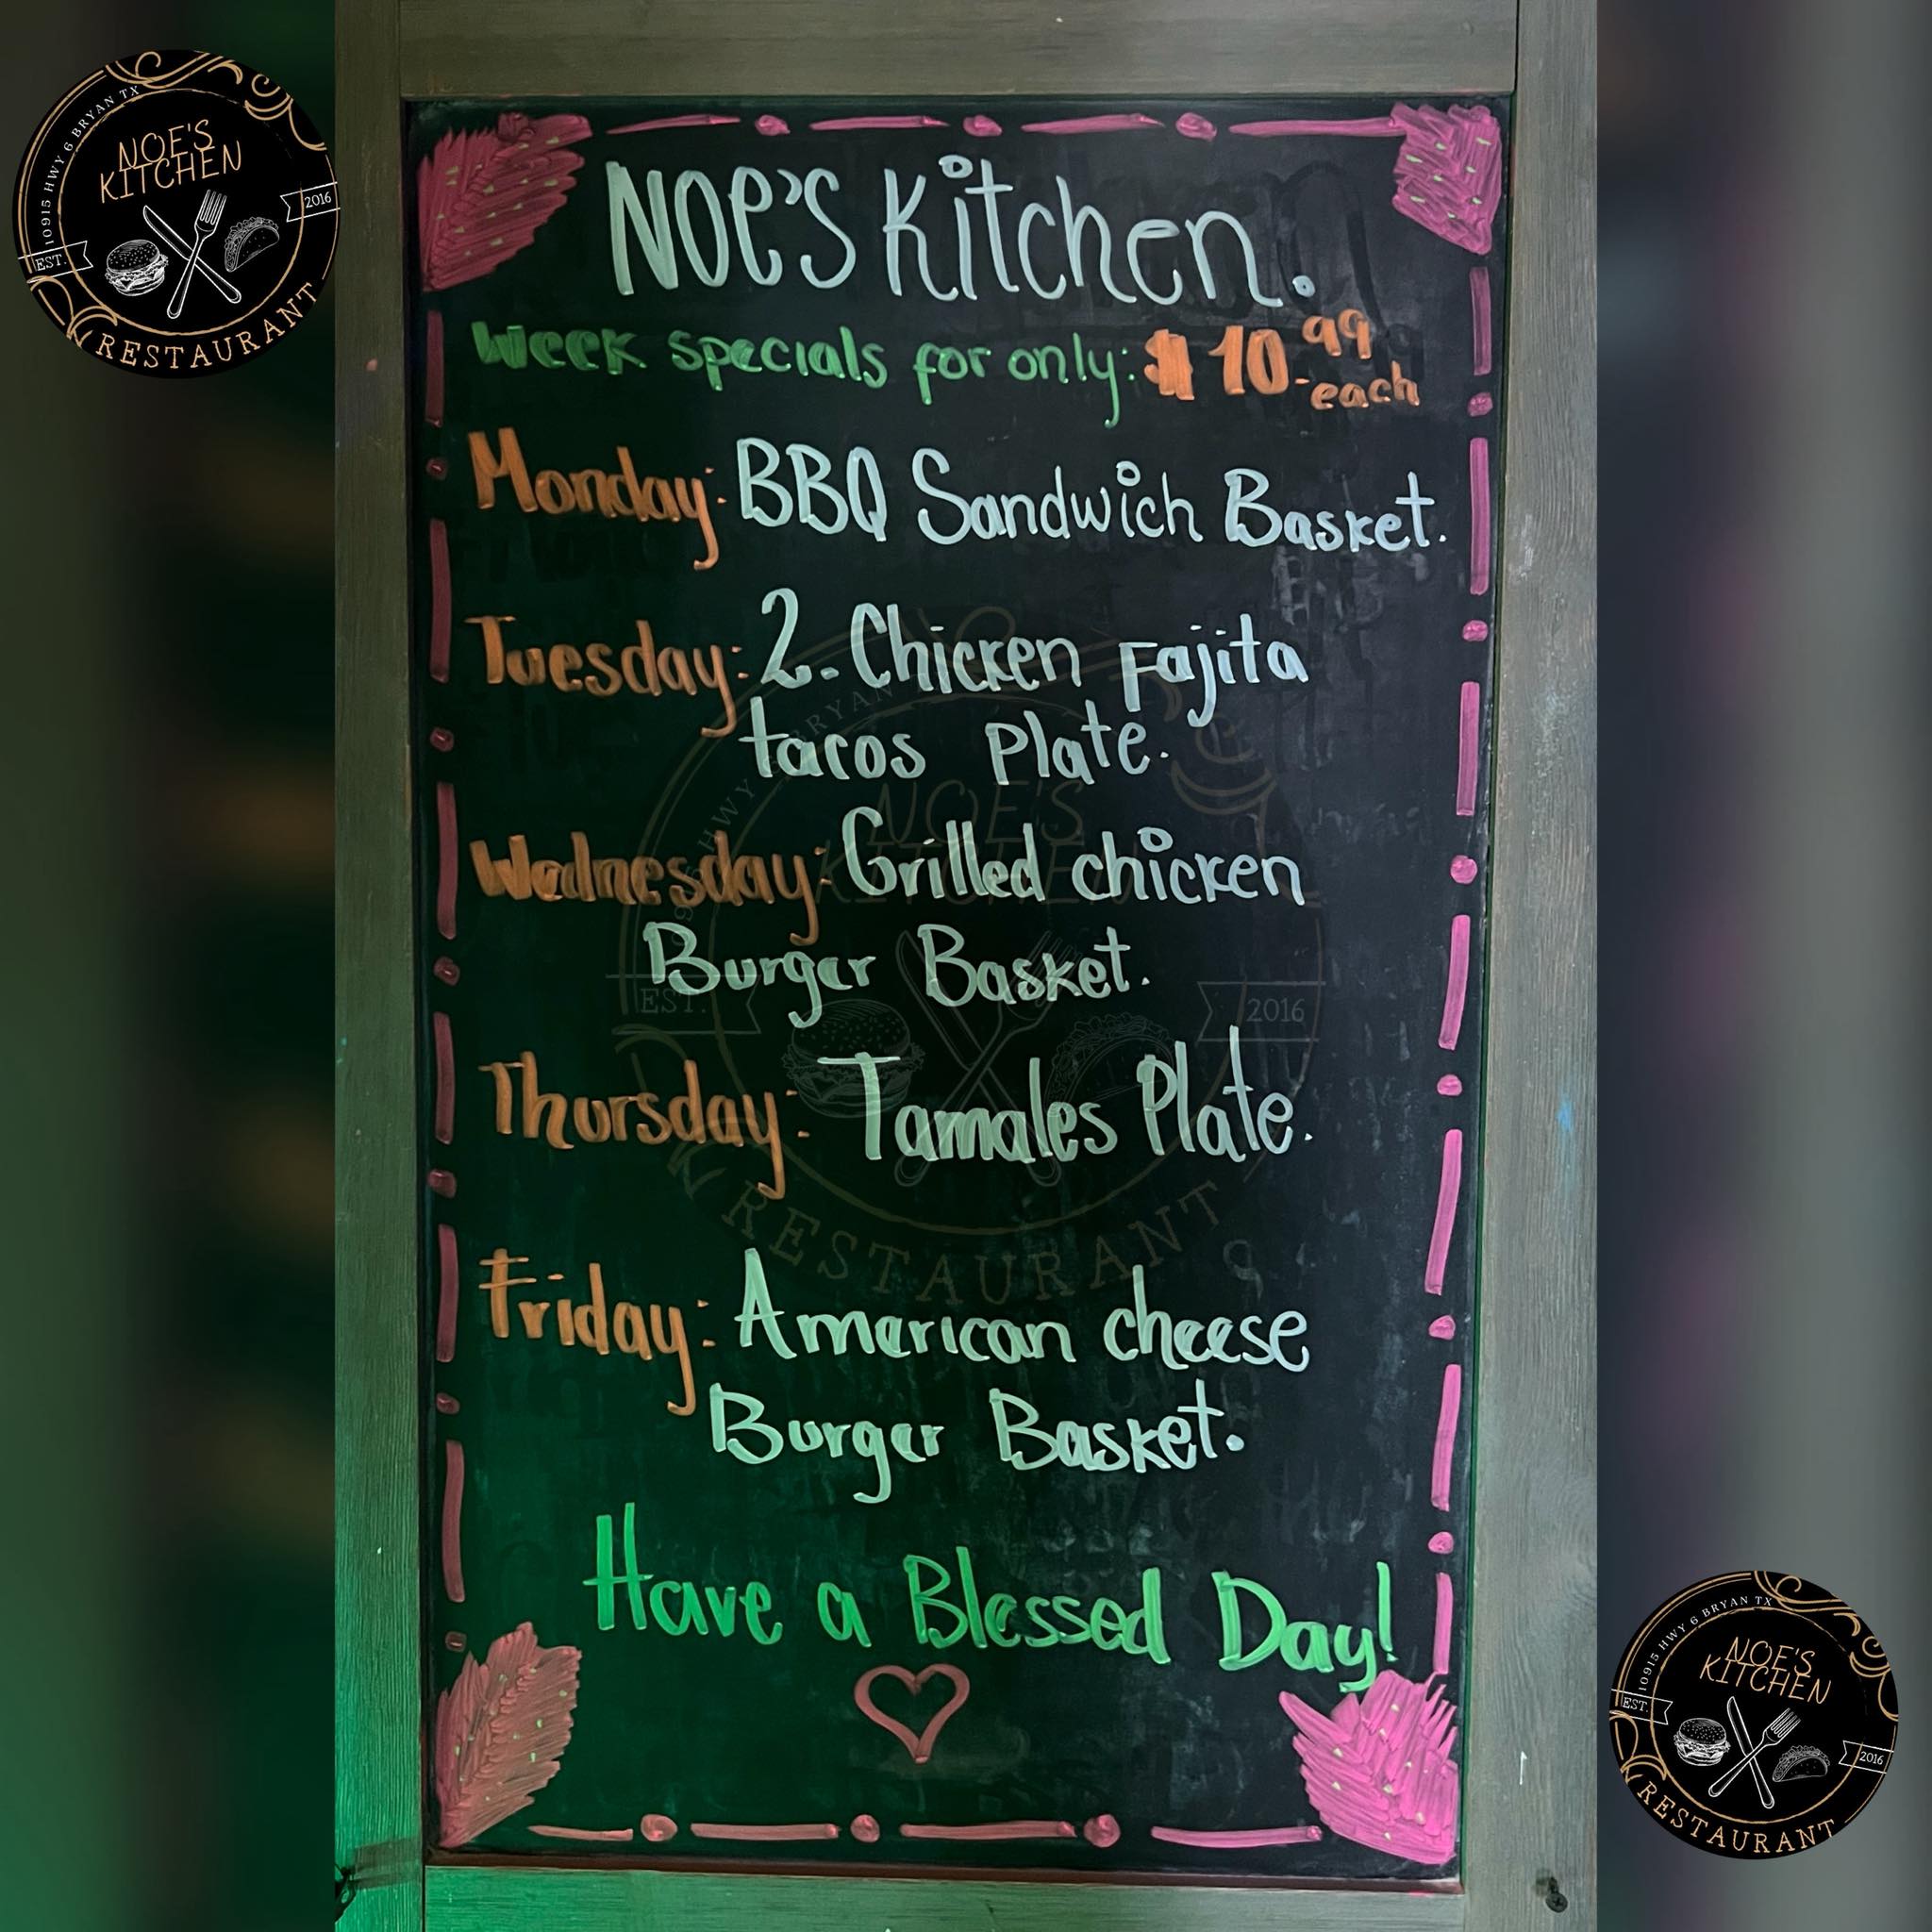 10915 HWY 6 BRYAN TX
NOE'S
KITCHEN
EST.
2016
RESTAURANT
NOE'S Kitchen.
Week specials for only: $10.99 each
Monday: BBQ Sandwich Basket.
Tuesday: 2. Chicken Fajita
tacos Plate.
Wednesday: Grilled chicken
Burger Basket.
Thursday: Tamales Plate.
Friday: American cheese
Burger Basket.
Have a Blessed Day!
BRYAN
HWY
NOE'S
KITCHEN
EST.
2016
RESTAURANT
10915 HWY 6 BRYAN TX
NOE'S
KITCHEN
EST.
2016
RESTAURANT